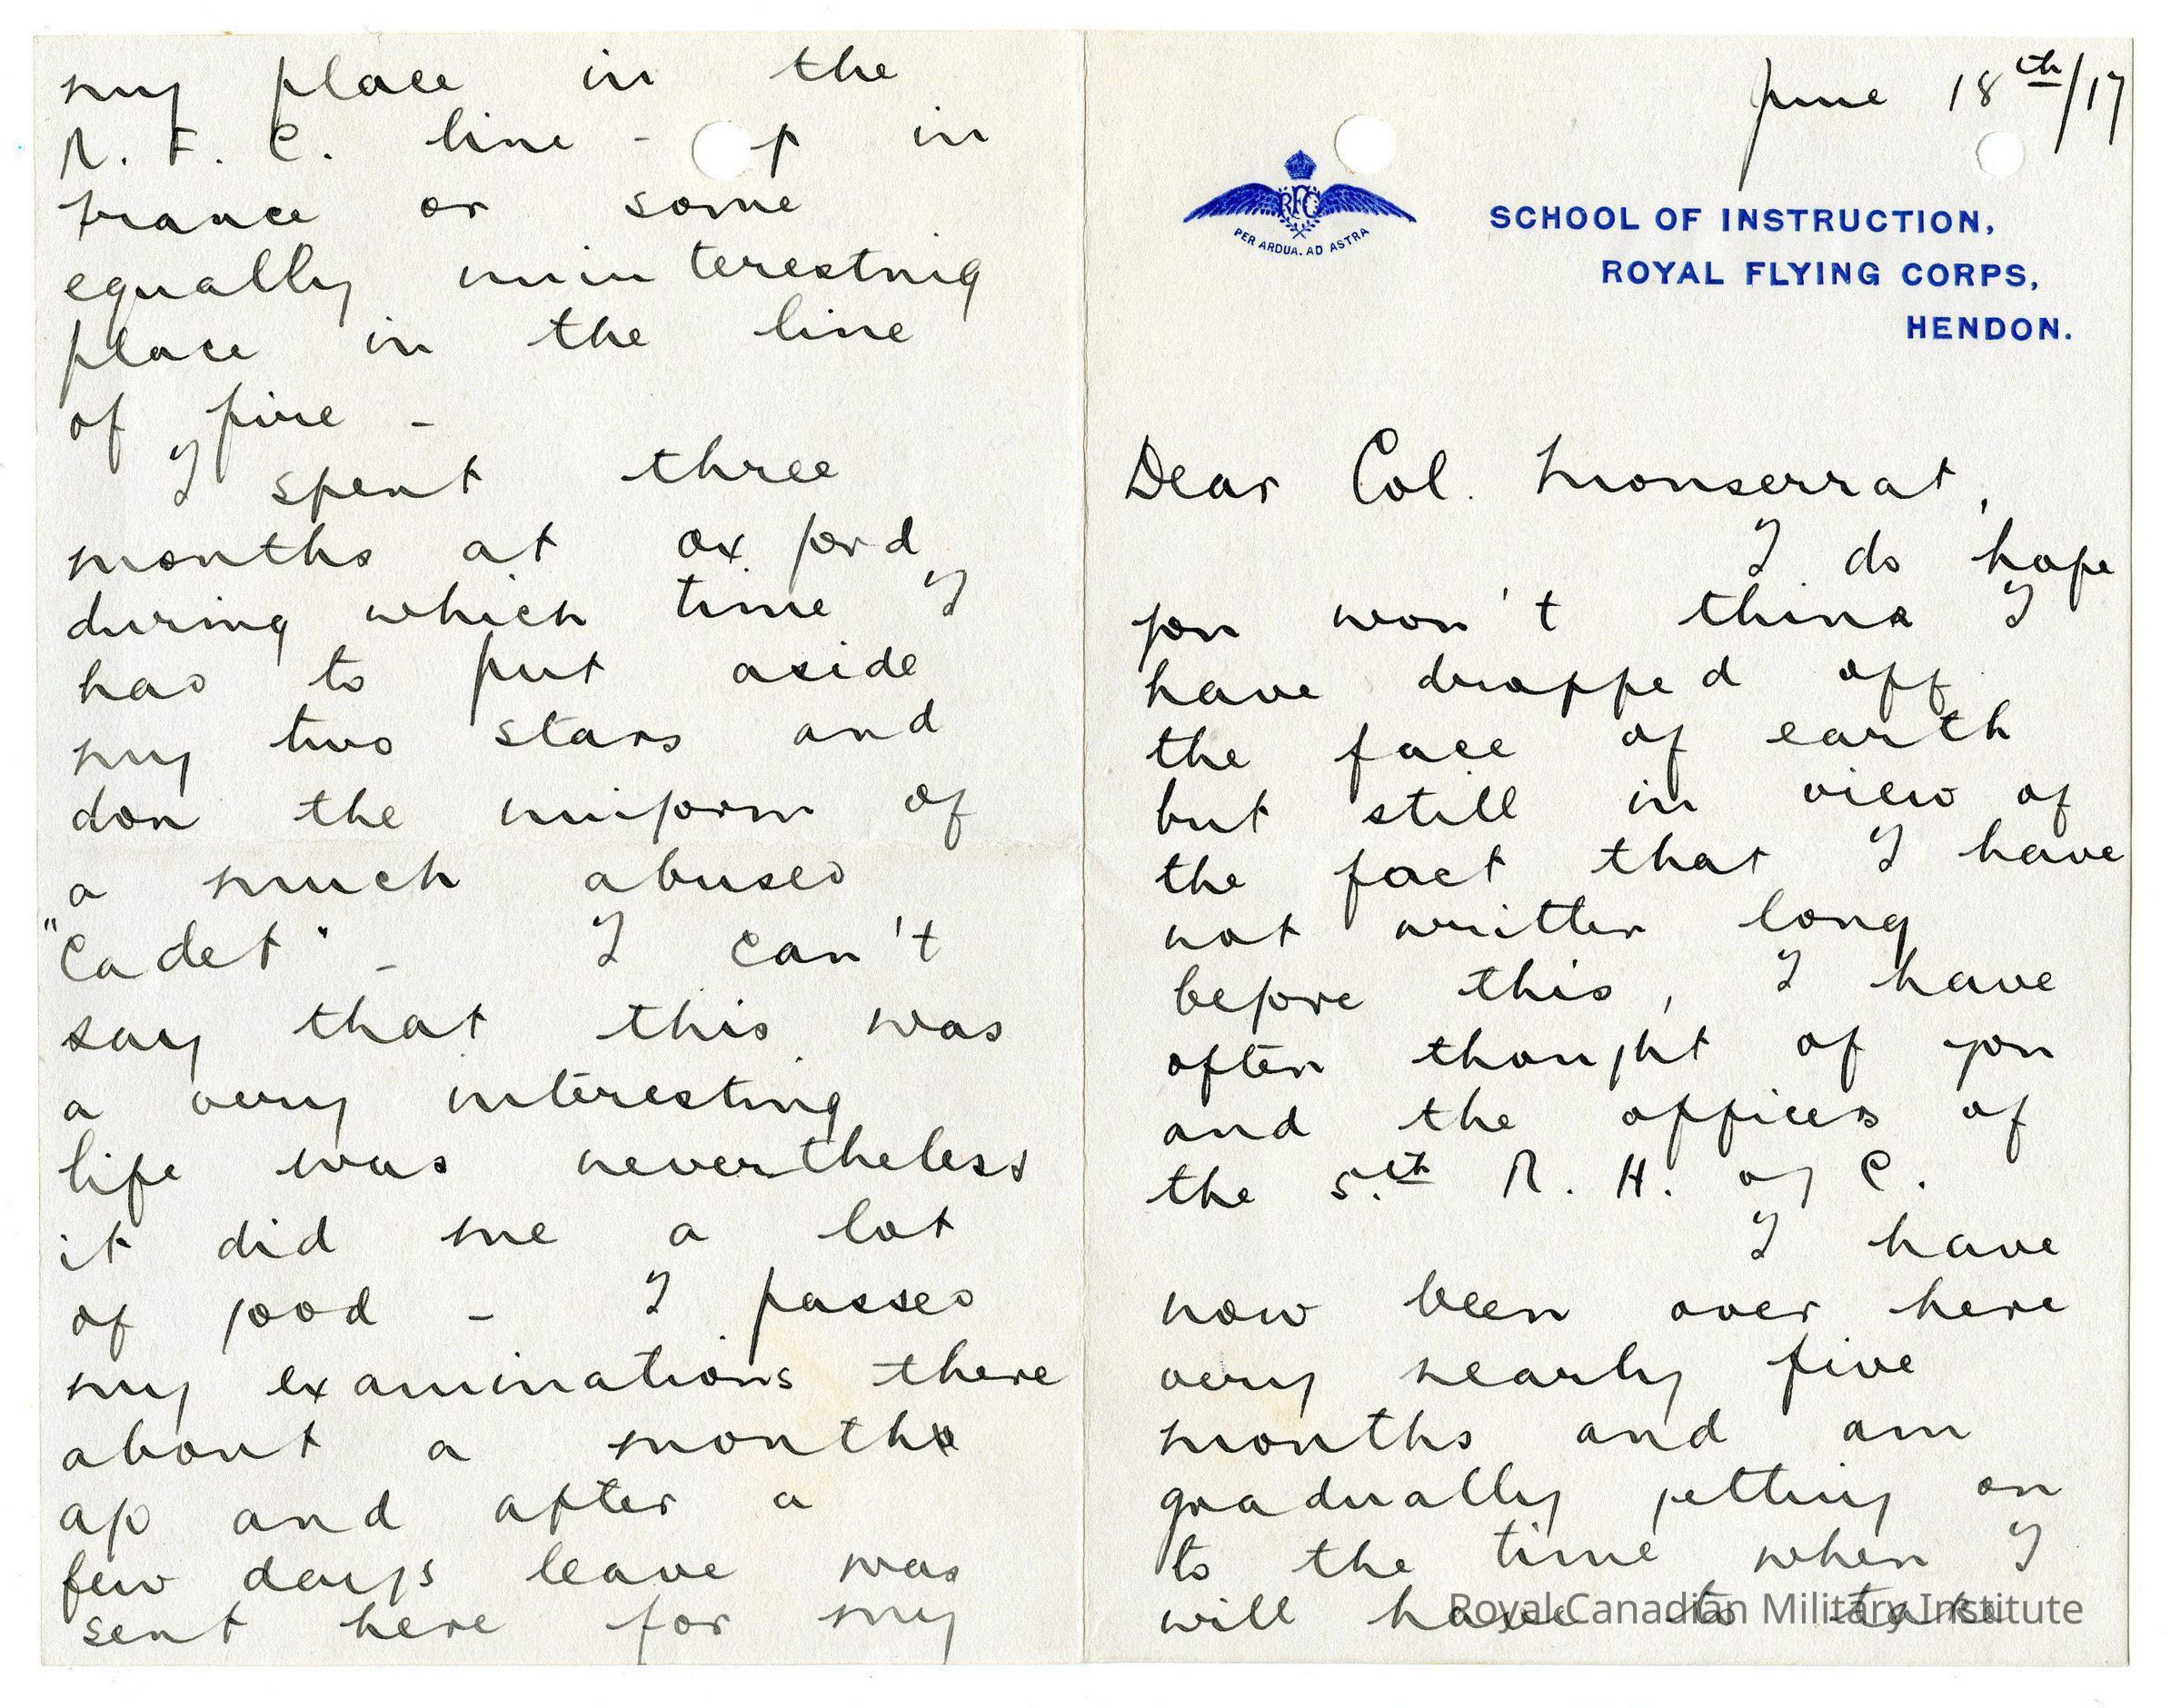 June 18th/17
RFC
PER ARDUA. AD ASTRA
SCHOOL OF INSTRUCTION,
ROYAL FLYING CORPS,
HENDON.
Dear Col. Monserrat,
I do hope
you won't think I
have dropped off
the face of earth
but still in view of
the fact that I have
not written long
before this, I have
often thought of you
and the officers of
the 5.th R. H. of C.
I have
now been over here
very nearly five
months and am
gradually getting on
to the time when I
will have to take
Royal Canadian Military Institute
my place in the
R. F. C. line - p in
France or some
equally uninteresting
place in the line
of fire -
I spent three
months at Oxford
during which time I
had to put aside
my two stars and
don the uniform of
a much abused
"Cadet" - I can't
say that this was
a very interesting
life was nevertheless
it did me a lot
of good - I passed
my examinations there
about a month
ago and after a
few days leave was
sent here for my